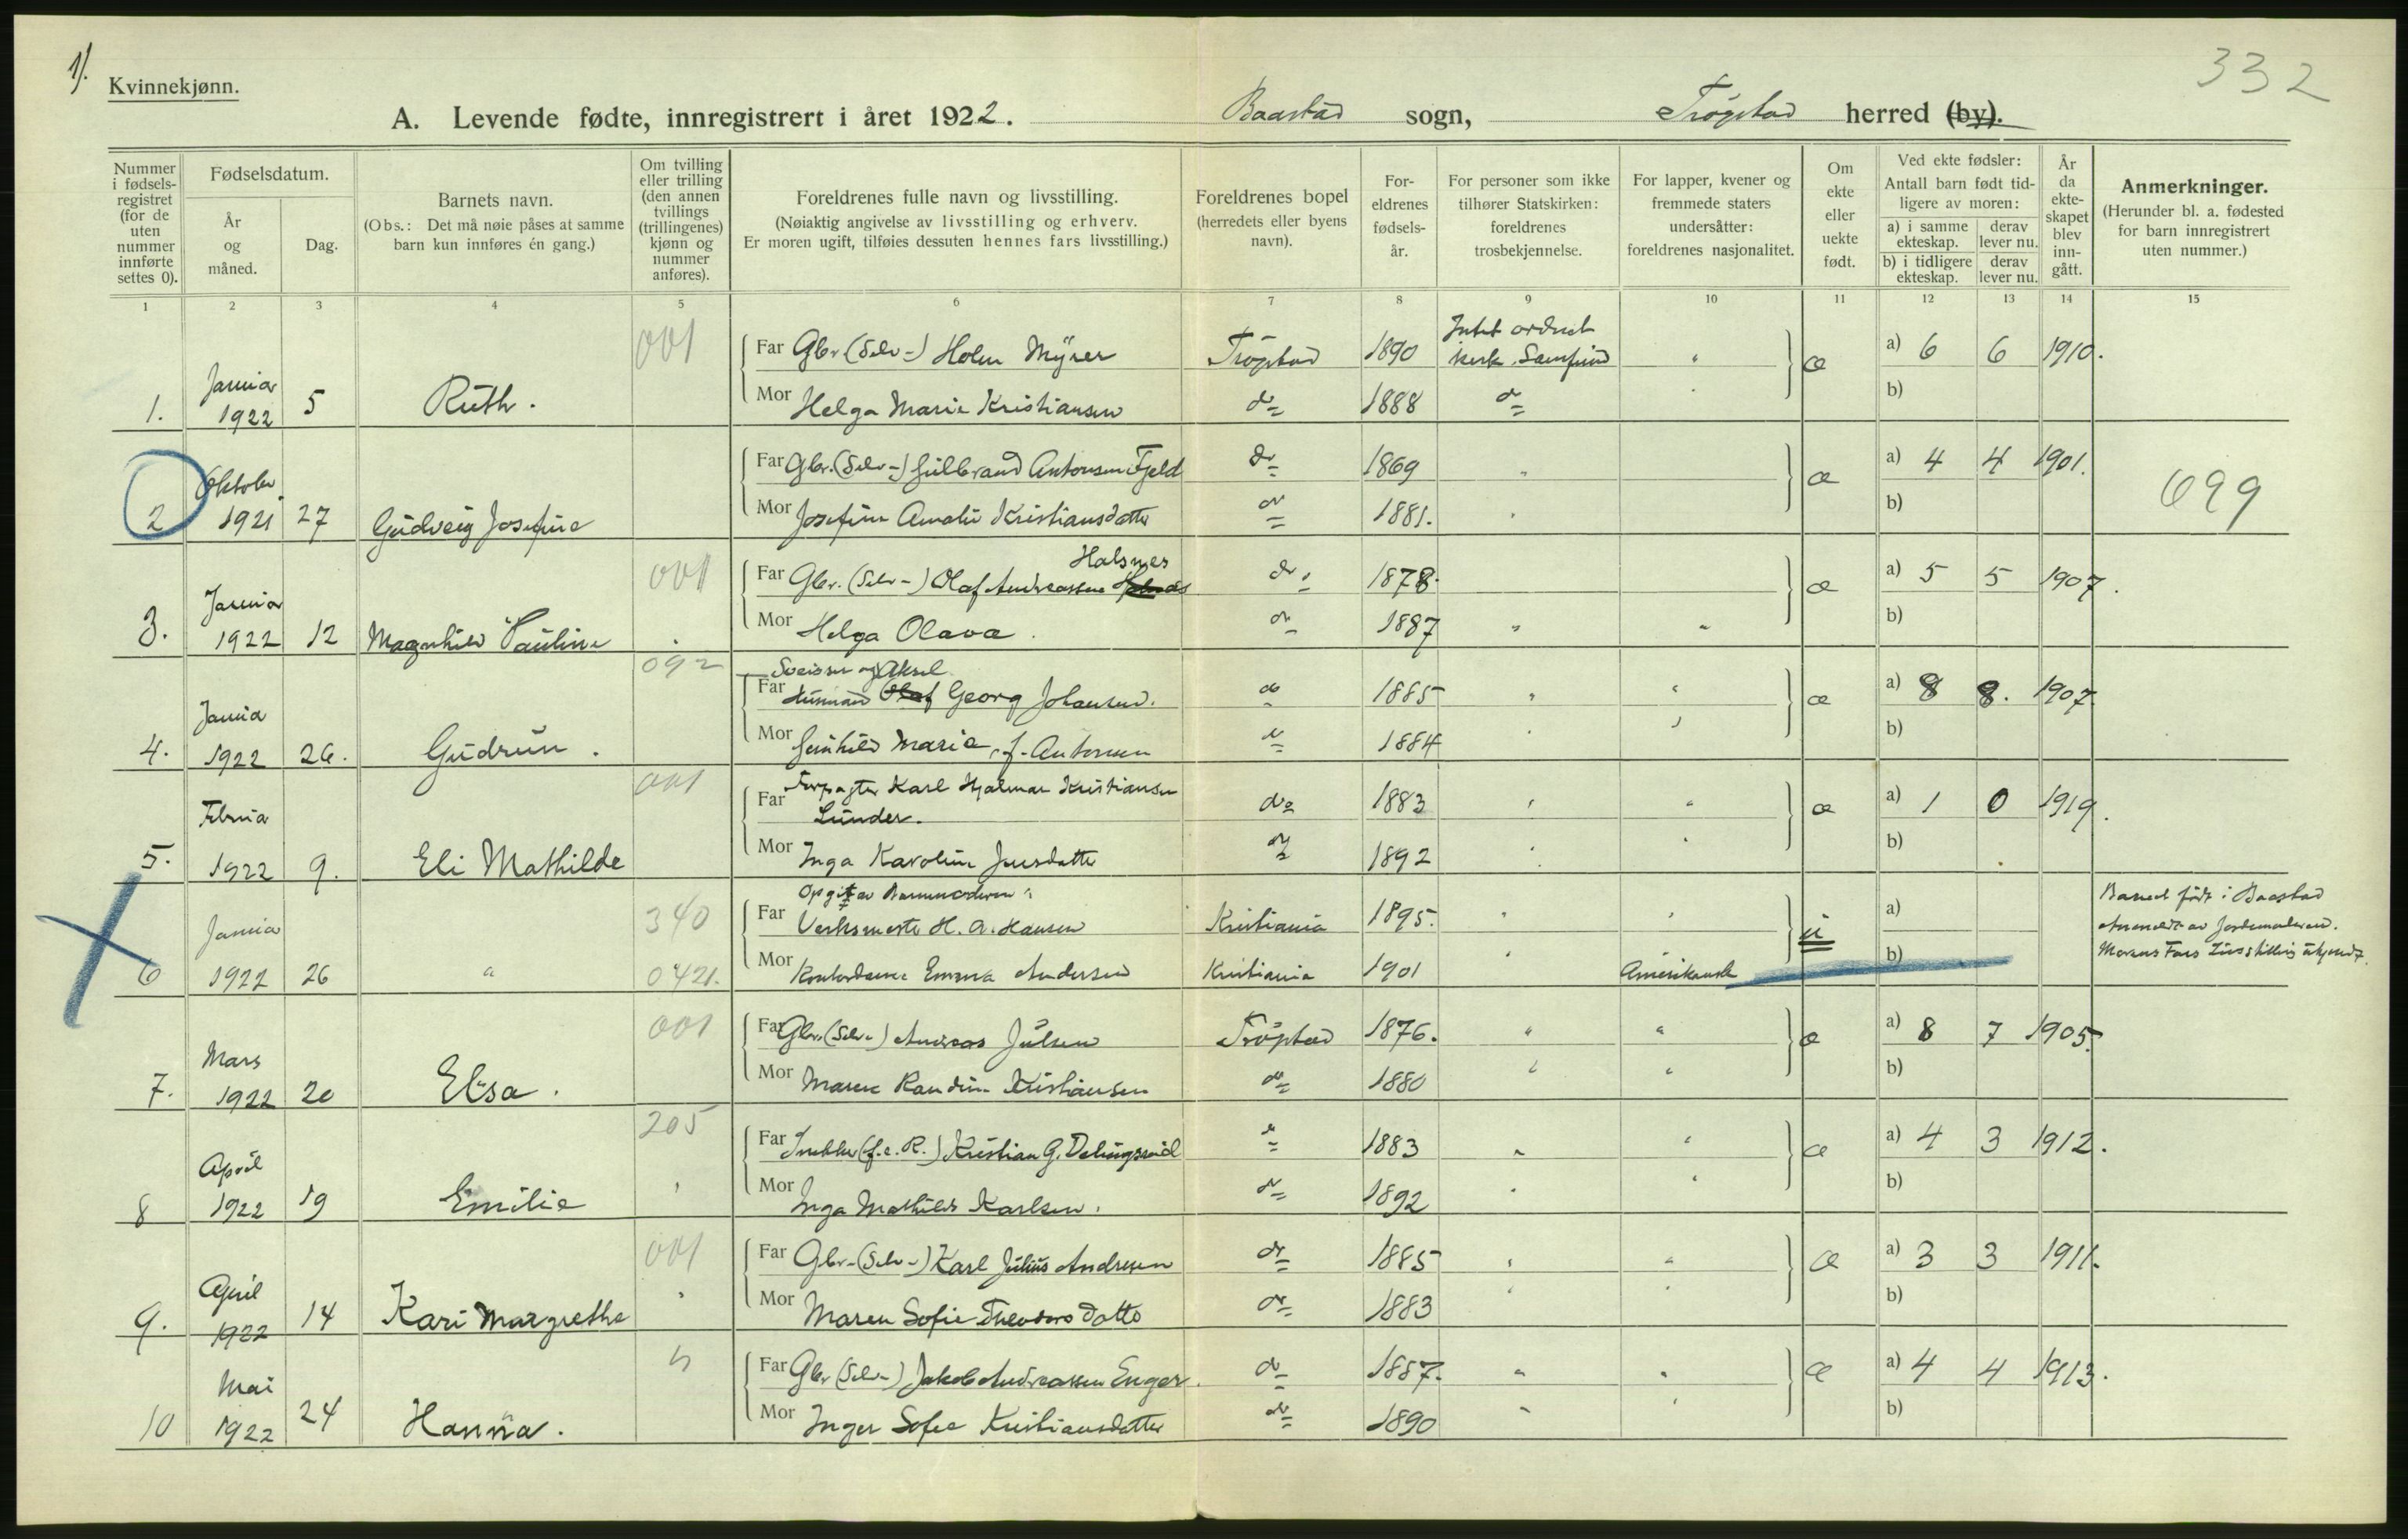 1).
332
Kvinnekjønn.
A. Levende fødte, innregistrert i året 1922. Baastad sogn, Trøgstad herred (by).
Nummer i fødsels- registret (for de uten nummer innførte settes 0).
Fødselsdatum.
År og måned.
Dag.
Barnets navn.
(Obs.: Det må nøie påses at samme barn kun innføres én gang.)
Om tvilling eller trilling (den annen tvillings (trillingenes) kjønn og nummer anføres).
Foreldrenes fulle navn og livsstilling.
(Nøiaktig angivelse av livsstilling og erhverv.
Er moren ugift, tilføies dessuten hennes fars livsstilling.)
Foreldrenes bopel (herredets eller byens navn).
For- eldrenes fødsels- år.
For personer som ikke tilhører Statskirken: foreldrenes trosbekjennelse.
For lapper, kvener og fremmede staters undersåtter: foreldrenes nasjonalitet.
Om ekte eller uekte født.
Ved ekte fødsler:
Antall barn født tid- ligere av moren:
a) i samme ekteskap. derav lever nu.
b) i tidligere ekteskap. derav lever nu.
År da ekte- skapet blev inn- gått.
Anmerkninger.
(Herunder bl. a. fødested for barn innregistrert uten nummer.)
1 2 3 4 5 6 7 8 9 10 11 12 13 14 15
001
Far Gbr. (Selv-) Holm Myrer Trøgstad 1890 Intet ordnet kirk. Samfund " æ a) 6 6 1910.
1. Januar 1922 5 Ruth.
Mor Helga Marie Kristiansen do 1888 do b)
Far Gbr. (Selv-) Gulbrand Antonsen Fjeld do 1869 " æ a) 4 4 1901.
699
2 Oktober 1921 27 Gudveig Josefine
Mor Josefine Amalie Kristiansdatter do 1881. " b)
001
Halsnes
Far Gbr. (Selv-) Olaf Andreassen do 1878. æ a) 5 5 1907.
3. Januar 1922 12 Magnhild Pauline
Mor Helga Olava. do 1887 " " b)
092
Sveisser og Aksel
Far Olaf Georg Johansen. do 1885 " " æ a) 8 8. 1907.
4. Janua 1922 26. Gudrun.
Mor Gunhild Marie, f. Antonsen do 1884 b)
001
Far Forpagter Karl Hjalmar Kristiansen
Lunder. do 1883 " " æ a) 1 0 1919.
5. Februa 1922 9. Eli Mathilde
Mor Inga Karoline Jensdatter do 1892 b)
340
Opgit av Barnemoderen:
Far Verksmester H. A. Hansen Kristiania 1895. " " u a)
Barnet født i Baastad
Anmeldt av Jordemoderen.
Morens Fars Livsstilling ukjendt.
6 Janua 1922 26 "
0421.
Mor Kontordame Emma Andersen Kristiania 1901 " Amerikansk b)
001
Far Gbr. (Selv-) Andreas Julsen Trøgstad 1876. " " æ a) 8 7 1905.
7. Mars 1922 20 Elsa.
Mor Maren Randine Kristiansen do 1880 " " b)
205
Far Snekker (f. e. R.) Kristian G. Delingsrud do 1883 " " æ a) 4 3 1912.
8 April 1922 19 Emilie
Mor Inga Mathilde Karlsen. do 1892 " " b)
001
Far Gbr. (Selv-) Karl Julius Andresen do 1885 " " æ a) 3 3 1911.
9. April 1922 14 Kari Margrethe
Mor Maren Sofie Theodorsdatter do 1883 " " b)
"
Far Gbr (Selv-) Jakob Andreassen Enger. do 1887. " " æ a) 4 4 1913.
10 Mai 1922 24 Hanna.
Mor Inger Sofie Kristiansdatter do 1890 " " b)